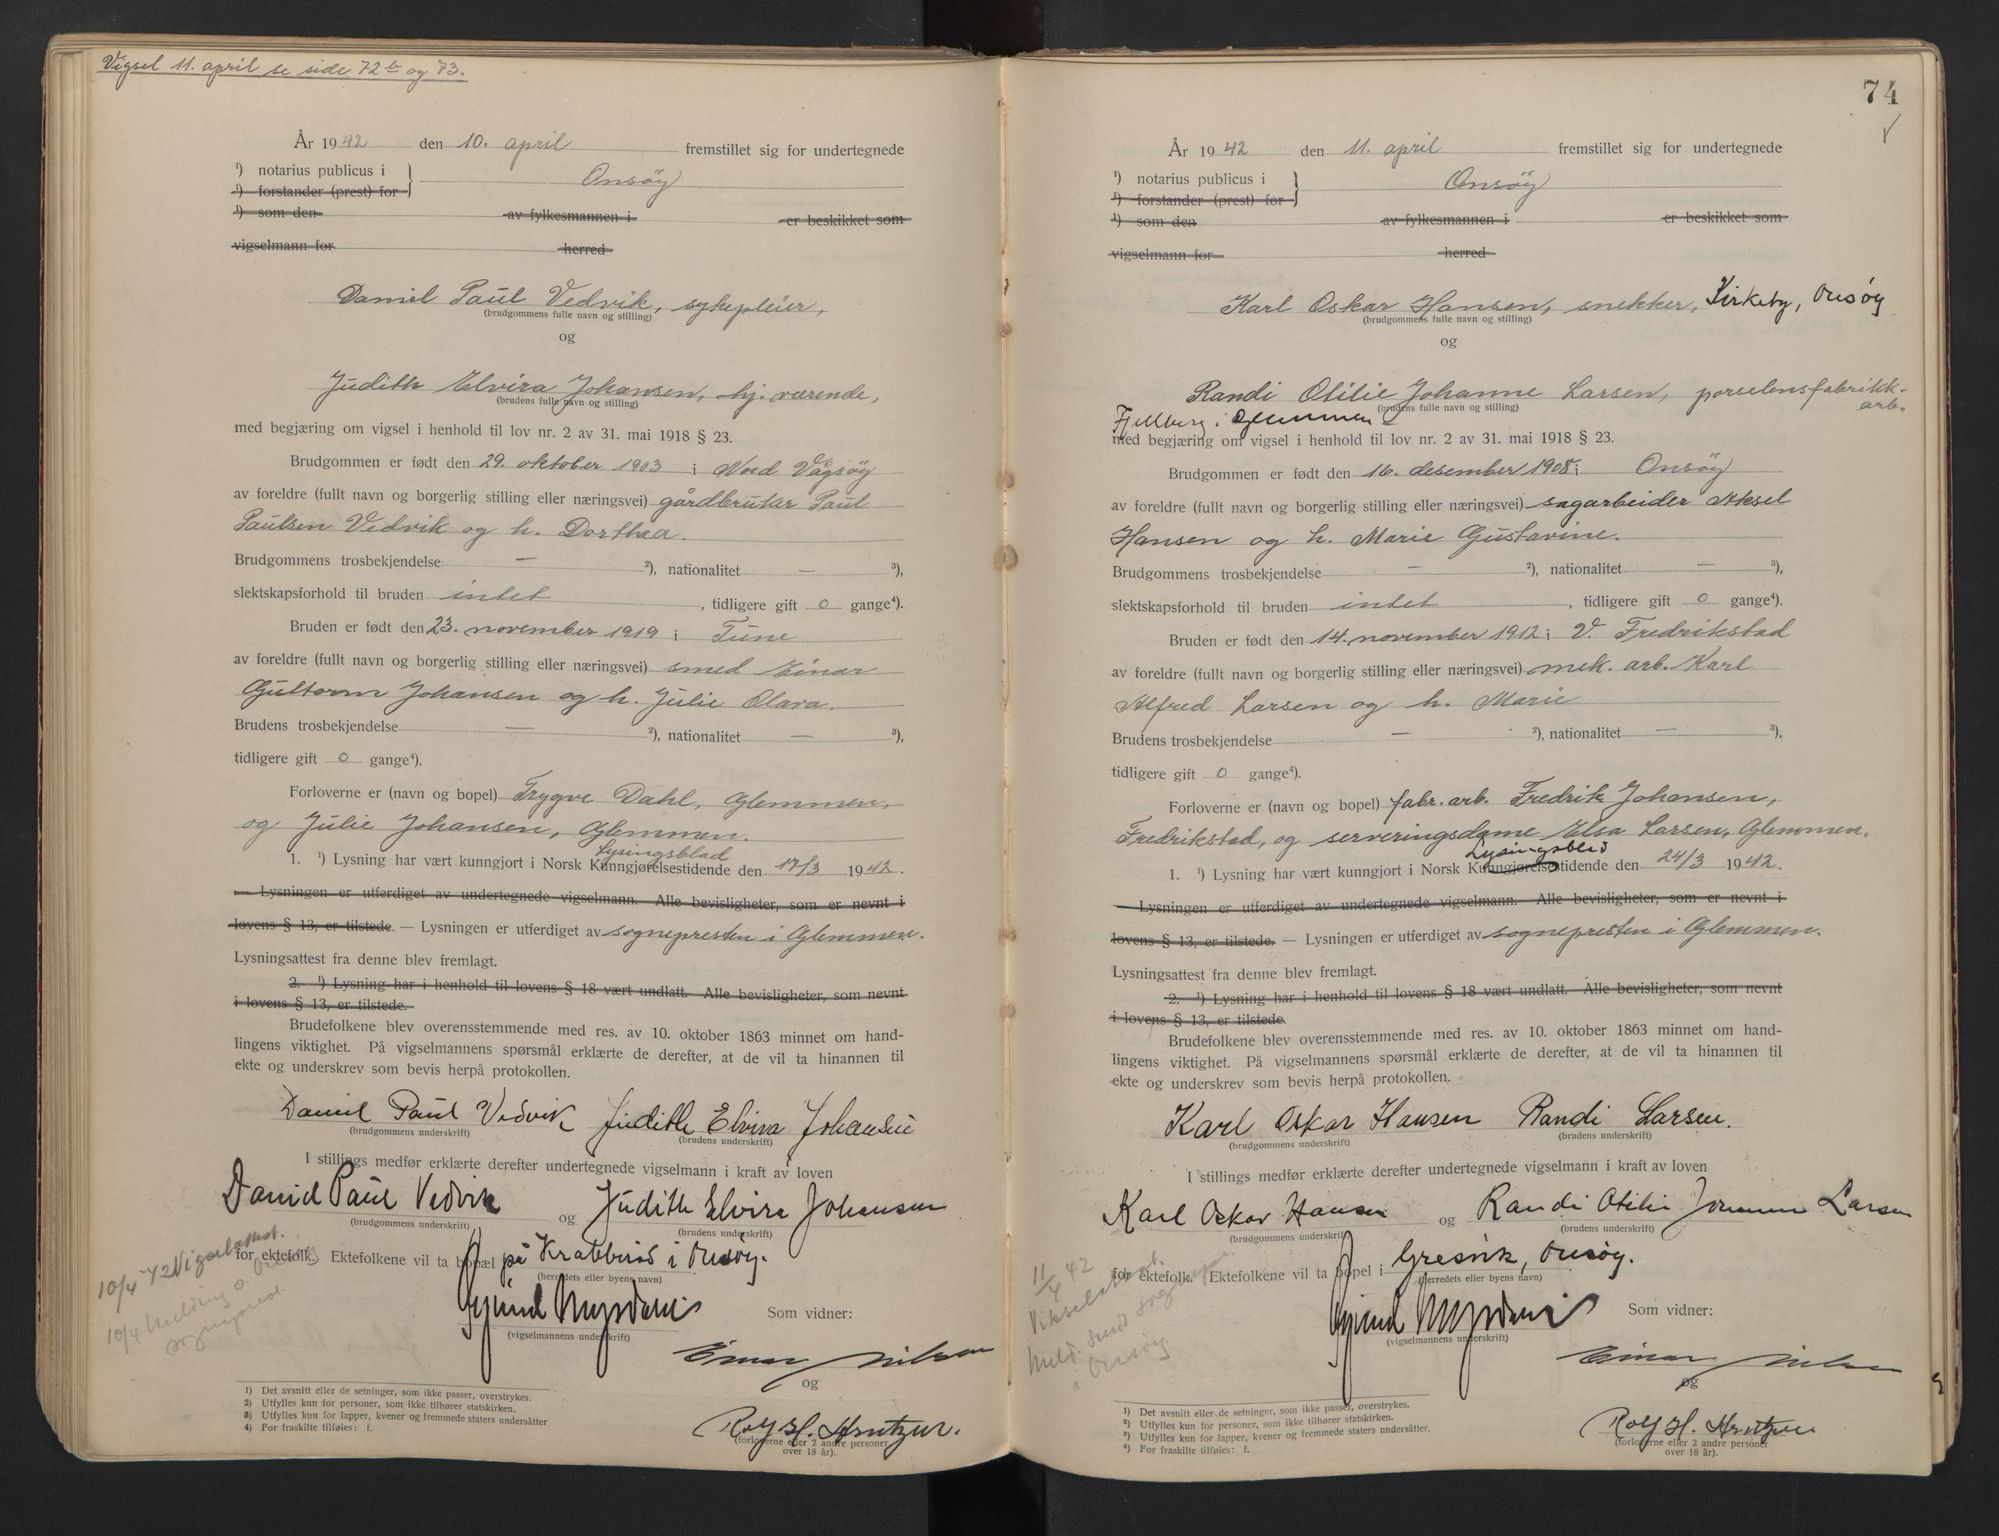 Vigsel 11. april se side 72 b og 73.
År 1942 den 10. april fremstillet sig for undertegnede
¹) notarius publicus i
¹) forstander (prest) for
Onsøy
¹) som den av fylkesmannen i er beskikket som
vigselmann for herred
Daniel Paul Vedvik, sykepleier,
(brudgommens fulle navn og stilling)
og
Judith Elvira Johansen, hj. værende,
(brudens fulle navn og stilling)
med begjæring om vigsel i henhold til lov nr. 2 av 31. mai 1918 § 23.
Brudgommen er født den 29. oktober 1903 i Nord Vågsøy
av foreldre (fullt navn og borgerlig stilling eller næringsvei) gårdbruker Paul
Paulsen Vedvik og h. Dorthea.
Brudgommens trosbekjendelse — ²), nationalitet — ³),
slektskapsforhold til bruden intet, tidligere gift 0 gange⁴).
Bruden er født den 23. november 1919 i Tune
av foreldre (fullt navn og borgerlig stilling eller næringsvei) smed Einar
Guttorm Johansen og h. Julie Olava.
Brudens trosbekjendelse — ²), nationalitet — ³),
tidligere gift 0 gange⁴).
Forloverne er (navn og bopel) Trygve Dahl, Glemmen,
og Julie Johansen, Glemmen.
Lysingsblad
1. ¹) Lysning har vært kunngjort i Norsk Kunngjørelsestidende den 17/3 1942.
Lysningen er utferdiget av undertegnede vigselmann. Alle bevisligheter, som er nevnt i
lovens § 13, er tilstede. — Lysningen er utferdiget av sognepresten i Glemmen.
Lysningsattest fra denne blev fremlagt.
2. ¹) Lysning har i henhold til lovens § 18 vært undlatt. Alle bevisligheter, som nevnt
i lovens § 13, er tilstede.
Brudefolkene blev overensstemmende med res. av 10. oktober 1863 minnet om hand-
lingens viktighet. På vigselmannens spørsmål erklærte de derefter, at de vil ta hinannen til
ekte og underskrev som bevis herpå protokollen.
Daniel Paul Vedvik Judith Elvira Johansen
(brudgommens underskrift) (brudens underskrift)
I stillings medfør erklærte derefter undertegnede vigselmann i kraft av loven
Daniel Paul Vedvik og Judith Elvira Johansen
(brudgommens underskrift) (brudens underskrift)
for ektefolk. Ektefolkene vil ta bopel på Krabberød i Onsøy.
(herredets eller byens navn)
10/4-42 Vigselattest.
10/4 Melding s. Onsøy
sogneprest.
(vigselmannens underskrift) Som vidner:
Einar Nilsen
og
Rolf H. Krutzer.
(forloverne eller 2 andre personer
over 18 år).
1) Det avsnitt eller de setninger, som ikke passer, overstrykes.
2) Utfylles kun for personer, som ikke tilhører statskirken.
3) Utfylles kun for lapper, kvener og fremmede staters undersåtter
4) For fraskilte tilføies: f.
74
År 1942 den 11. april fremstillet sig for undertegnede
¹) notarius publicus i
¹) forstander (prest) for
Onsøy
¹) som den av fylkesmannen i er beskikket som
vigselmann for herred
Karl Oskar Hansen, snekker, Kirkeby, Onsøy
(brudgommens fulle navn og stilling)
og
Randi Otilie Johanne Larsen, porselensfabrikk-
arb.
(brudens fulle navn og stilling)
Fjellberg i Glemmen
med begjæring om vigsel i henhold til lov nr. 2 av 31. mai 1918 § 23.
Brudgommen er født den 16. desember 1908 i Onsøy
av foreldre (fullt navn og borgerlig stilling eller næringsvei) sagarbeider Aksel
Hansen og h. Marie Gustavine.
Brudgommens trosbekjendelse — ²), nationalitet — ³),
slektskapsforhold til bruden intet, tidligere gift 0 gange⁴).
Bruden er født den 14. november 1912 i V. Fredrikstad
av foreldre (fullt navn og borgerlig stilling eller næringsvei) mek. arb. Karl
Alfred Larsen og h. Marie
Brudens trosbekjendelse — ²), nationalitet — ³),
tidligere gift 0 gange⁴).
Forloverne er (navn og bopel) fabr. arb. Fredrik Johansen,
Fredrikstad, og serveringsdame Elsa Larsen, Glemmen.
Lysingsblad
1. ¹) Lysning har vært kunngjort i Norsk Kunngjørelsestidende den 24/3 1942.
Lysningen er utferdiget av undertegnede vigselmann. Alle bevisligheter, som er nevnt i
lovens § 13, er tilstede. — Lysningen er utferdiget av sognepresten i Glemmen.
Lysningsattest fra denne blev fremlagt.
2. ¹) Lysning har i henhold til lovens § 18 vært undlatt. Alle bevisligheter, som nevnt
i lovens § 13, er tilstede
Brudefolkene blev overensstemmende med res. av 10. oktober 1863 minnet om hand-
lingens viktighet. På vigselmannens spørsmål erklærte de derefter, at de vil ta hinannen til
ekte og underskrev som bevis herpå protokollen.
Karl Oskar Hansen Randi Larsen.
(brudgommens underskrift) (brudens underskrift)
I stillings medfør erklærte derefter undertegnede vigselmann i kraft av loven
Karl Oskar Hansen og Randi Otilie Johanne Larsen
(brudgommens underskrift) (brudens underskrift)
for ektefolk. Ektefolkene vil ta bopel i Gresvik, Onsøy.
(herredets eller byens navn)
11/4 42
Vikselattest.
Meld. sendt sognepr.
i Onsøy
(vigselmannens underskrift) Som vidner:
Einar Nilsen
og
Rolf H. Krutzer
(forloverne eller 2 andre personer
over 18 år).
1) Det avsnitt eller de setninger, som ikke passer, overstrykes.
2) Utfylles kun for personer, som ikke tilhører statskirken.
3) Utfylles kun for lapper, kvener og fremmede staters undersåtter.
4) For fraskilte tilføies: f.